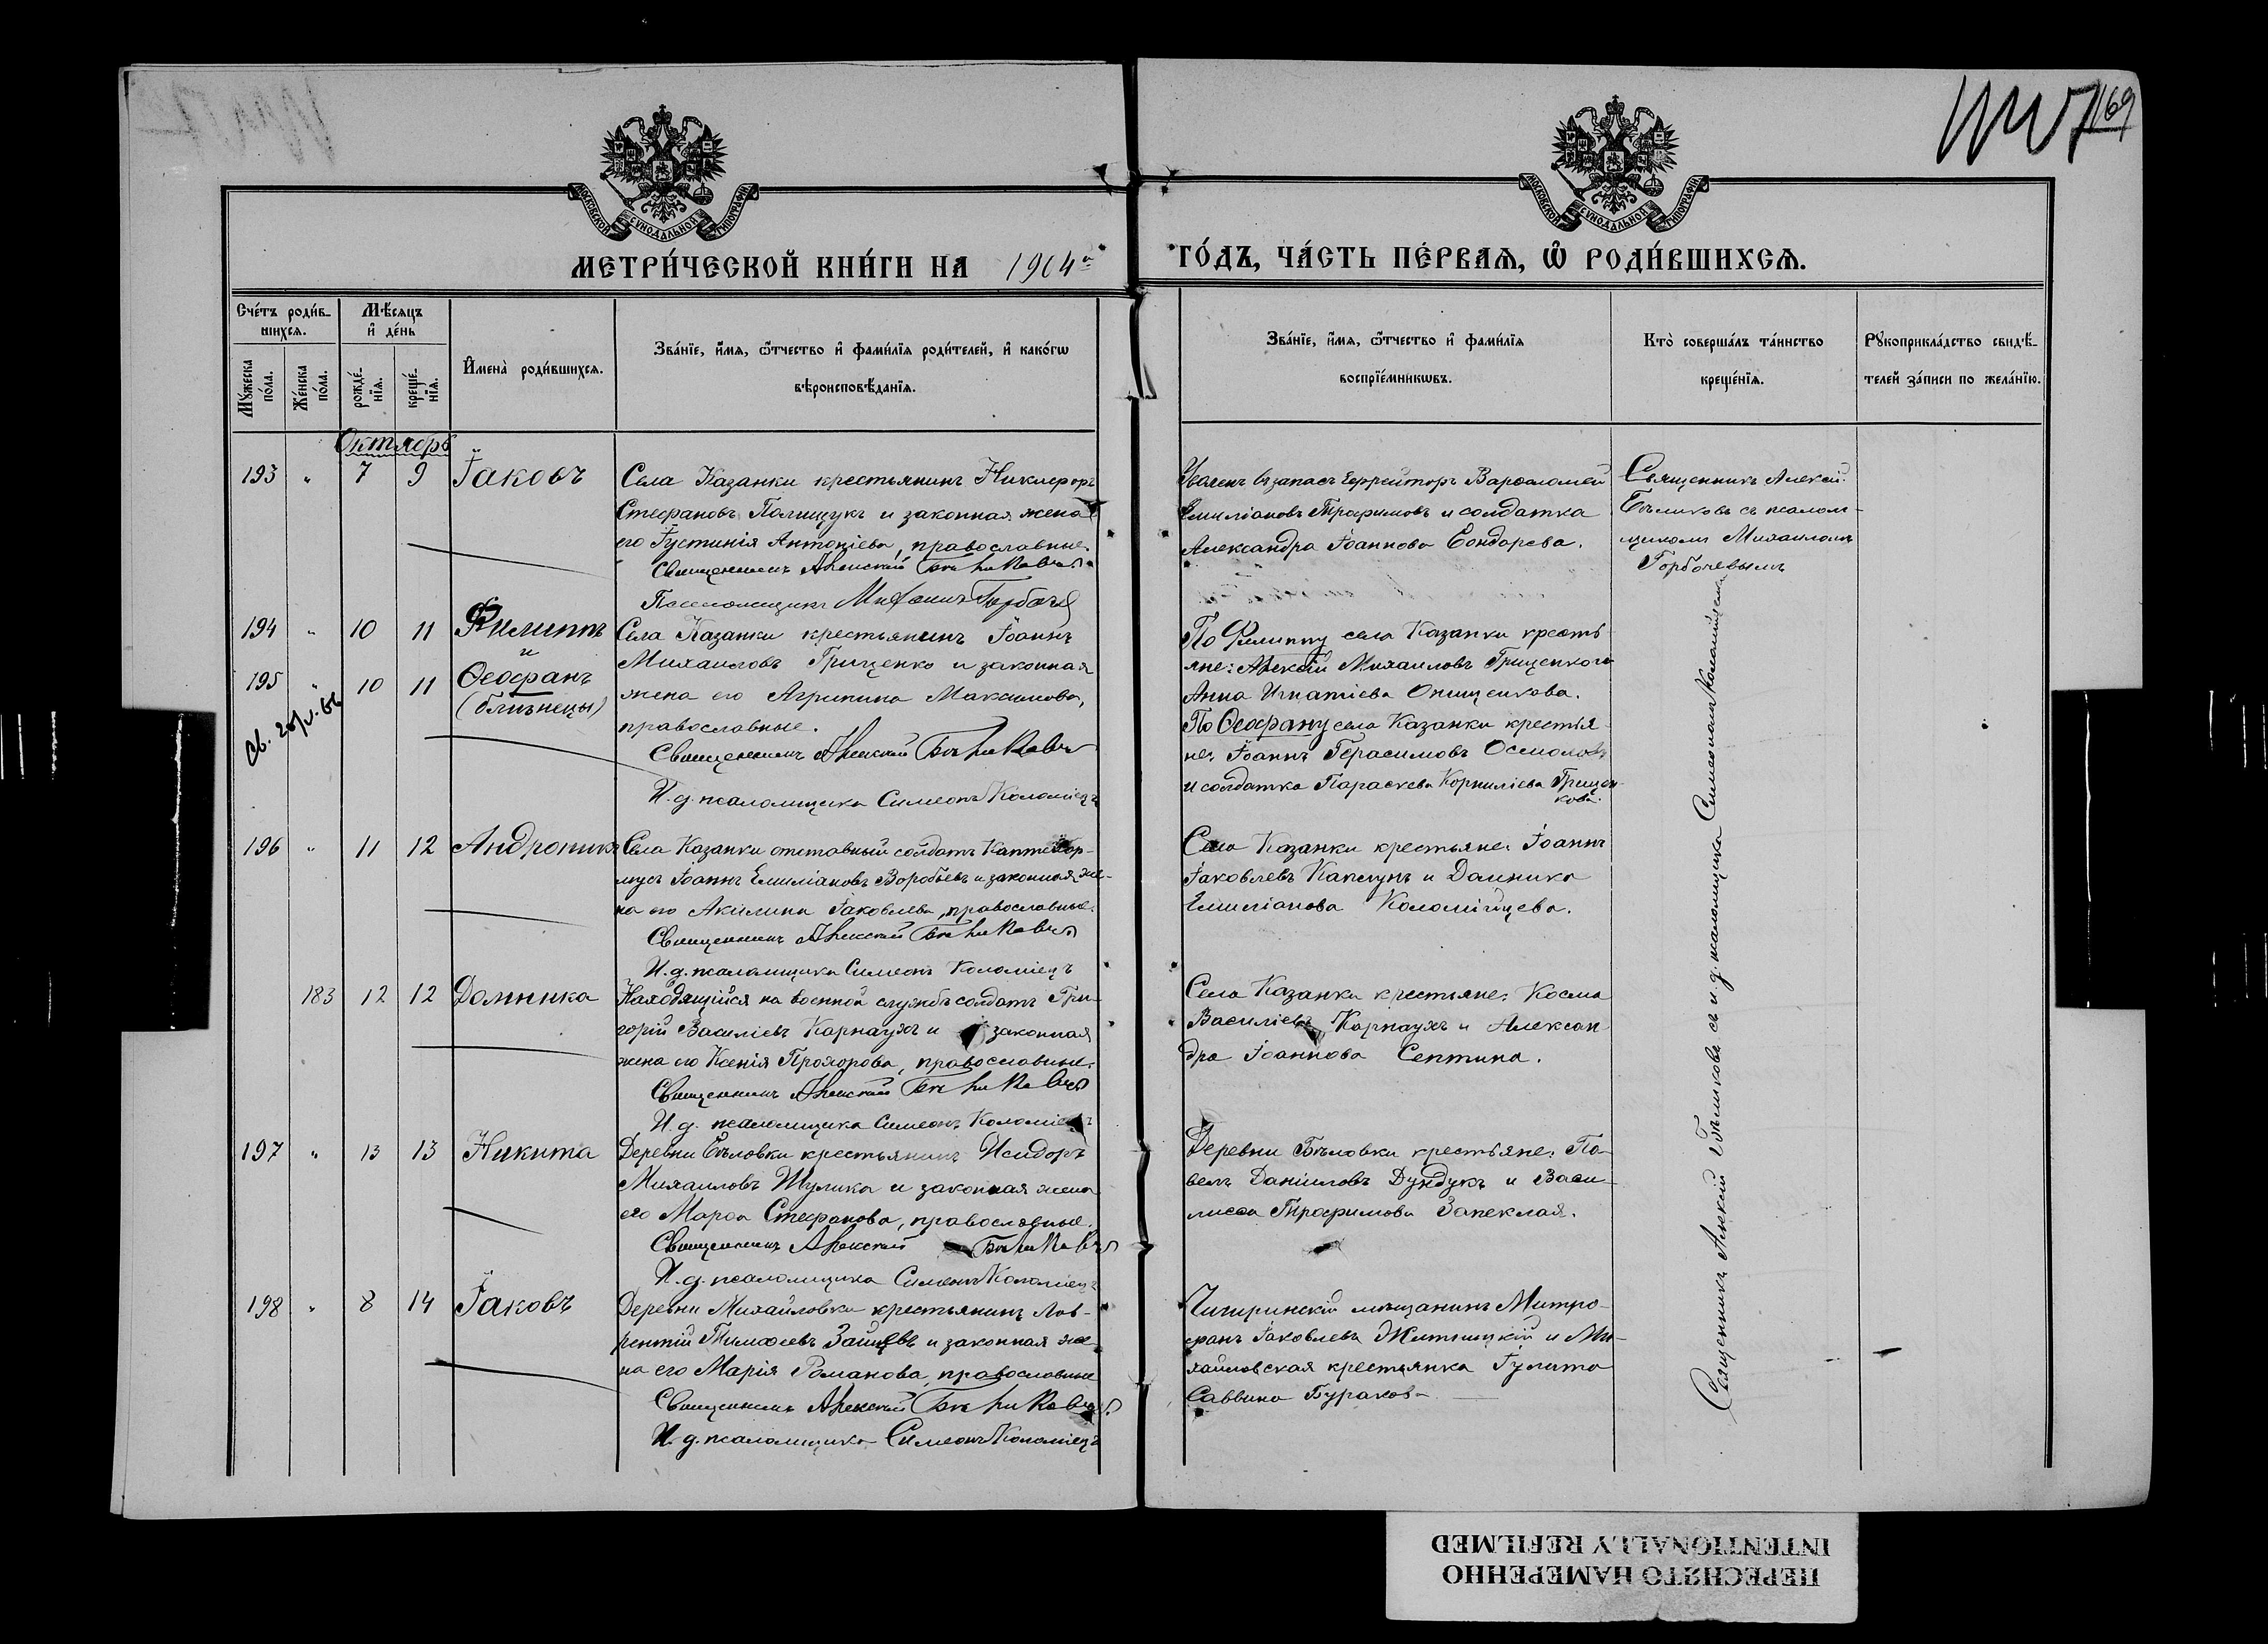 169
МОСКОВСКОЙ СѴНОДАЛЬНОЙ ТИПОГРАФІИ
МОСКОВСКОЙ СѴНОДАЛЬНОЙ ТИПОГРАФІИ
МЕТРИ́ЧЕСКОЙ КНИ́ГИ НА 1904й
ГО́ДЪ, ЧА́СТЬ ПЕ́РВАѦ, Ѡ҆ РОДИ́ВШИХСѦ.
Сче́тъ роди́в-
шихсѧ.
Мꙋ́жеска по́ла.
Же́нска по́ла.
Мѣ́сѧцъ
и҆ де́нь
рожде́-
нїѧ.
креще́-
нїѧ.
И҆мена̀ роди́вшихсѧ.
Зва́нїе, и҆́мѧ, ѻ҆́тчество и҆ фами́лїѧ роди́телей, и҆ како́гѡ
вѣроисповѣ́данїѧ.
Зва́нїе, и҆́мѧ, ѻ҆́тчество и҆ фами́лїѧ
воспрїе́мникѡвъ.
Кто̀ соверша́лъ та́инство
креще́нїѧ.
Рꙋкоприкла́дство свидѣ́-
телей за́писи по жела́нїю.
Октябрь
193 " 7 9 Іаковъ
Села Казанки крестьянинъ Никифоръ
Стефановъ Полищукъ и законная жена
его Іустинія Антоніева, православные.
Священникъ Алексій Бѣликовъ
Псаломщикъ Михаилъ Горбачев
Уволен. въ запасъ Ефрейторъ Варѳоломей
Емиліановъ Трофимовъ и солдатка
Александра Іоаннова Бондарева.
Священникъ Алексій
Бѣликовъ съ псалом-
щикомъ Михаиломъ
Горбачевымъ
194 " 10 11 Филиппъ
и
195 " 10 11 Ѳеофанъ
(близнецы)
Св. 20/V-66
Села Казанки крестьянинъ Іоаннъ
Михаиловъ Грищенко и законная
жена его Агрипина Максимова,
православные.
Священникъ Алексій Бѣликовъ
И. д. псаломщика Симеонъ Коломіецъ
По Филиппу села Казанки крестья-
яне: Алексій Михаиловъ Грищенко и
Анна Игнатіева Онищенкова.
По Ѳеофану села Казанки крестья-
не: Іоаннъ Герасимовъ Осмоловъ
и солдатка Параскева Корниліева Грищен-
кова.
196 " 11 12 Андроникъ
Села Казанки отставный солдатъ Каптенар-
мусъ Іоаннъ Емиліановъ Воробьевъ и законная же-
на его Акилина Іаковлева, православные.
Священникъ Алексій Бѣликовъ
И. д. псаломщика Симеонъ Коломіецъ
Села Казанки крестьяне: Іоаннъ
Іаковлевъ Каплунъ и Домника
Емиліанова Коломійцева.
183 12 12 Домника
Находящійся на военной службѣ солдатъ Гри-
горій Василіевъ Карнаухъ и законная
жена его Ксенія Прохорова, православные.
Священникъ Алексій Бѣликовъ
И. д. псаломщика Симеонъ Коломіецъ
Села Казанки крестьяне: Косма
Василіевъ Карнаухъ и Алексан-
дра Іоаннова Септина.
197 " 13 13 Никита
Деревни Бѣловки крестьянинъ Исидоръ
Михаиловъ Шулика и законная жена
его Марѳа Стефанова, православные.
Священникъ Алексій Бѣликовъ
И. д. псаломщика Симеонъ Коломіецъ
Деревни Бѣловки крестьяне: Па-
велъ Даніиловъ Дундукъ и Васи-
лисса Трофимова Запеклая.
198 " 8 14 Іаковъ
Деревни Михайловки крестьянинъ Лав-
рентій Тимоѳеевъ Зайцевъ и законная же-
на его Марія Романова, православные
Священникъ Алексій Бѣликовъ
И. д. псаломщика Симеонъ Коломіецъ
Чигиринскій мѣщанинъ Митро-
фанъ Іаковлевъ Житницкій и Ми-
хайловская крестьянка Іулита
Саввина Буракова
Священникъ Алексій Бѣликовъ съ и. д. псаломщика Симеономъ Коломійцемъ
ПЕРЕСНЯТО НАМЕРЕННО
INTENTIONALLY REFILMED